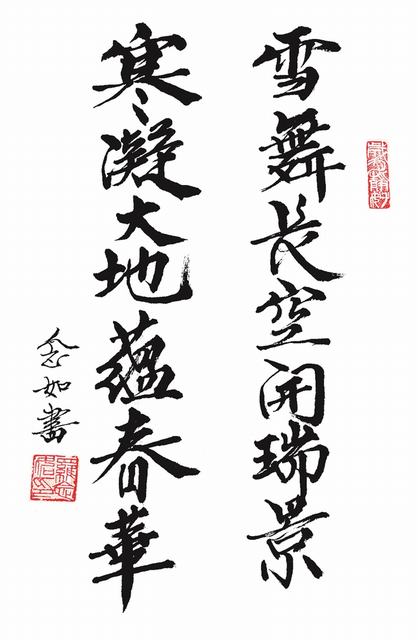 雪舞長空開瑞景
寒凝大地蘊春華
念如書